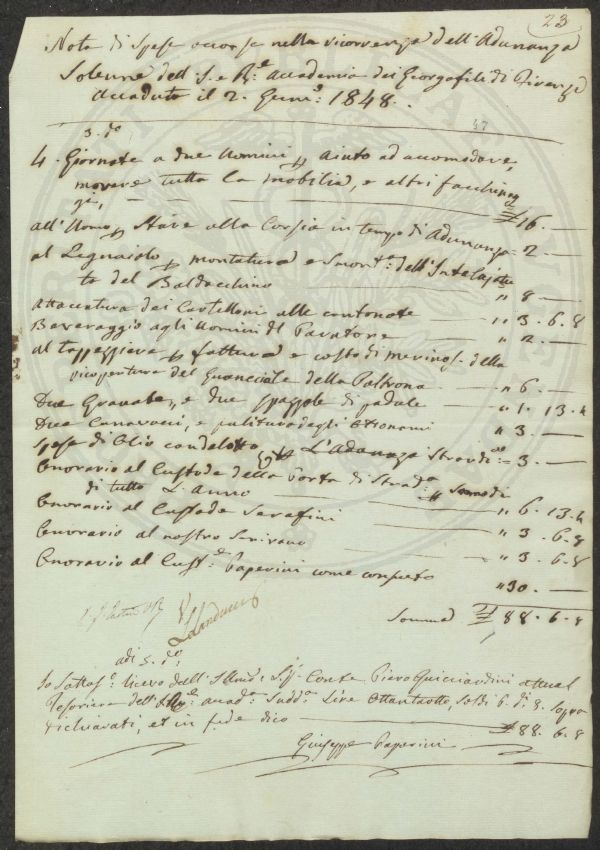 23
Nota di Spese occorse nella ricorrenza dell'Adunanza
Solenne dell' I. e R.e Accademia dei Georgofili di Firenze
accaduta il 2. Genn.o 1848.
47
3. d.o
4. Giornate a due Uomini p aiuto ad accomodare,
movere tutta la mobilia, e altri facchinag
gi, — £ 16. —
all'Uomo p Stare alla Corsia in tempo di Adunanza = 2 —
al Legnaiolo p montatura e Smont.a dell'Intelajatu
ra del Baldacchino " 8 —
Attaccatura dei Cartelloni alle cantonate " 3. 6. 8
Beveraggio agli Uomini del Paratore " 2. —
al Tappezziere p fattura e costo di merinos della
ricopertura del Guanciale della Poltrona " 6 —
Due Granate, e due spazzole di padule " 1. 13. 4
Due Canavacci, e pulitura degli Ottonami " 3. —
Spese di Olio candelotto p L'Adunanza Straordi.a = 3. —
Onorario al Custode della Porta di Strada
di tutto L'anno " 6. 13. 4
Onorario al Custode Serafini " 3. 6. 8
Onorario al nostro Scrivano " 3. 6. 8
Onorario al Cust.e Paperini come consueto
" 30. —
Somma £ 88. 6. 8
adi 5. d.o
Io Sottos.o ricevo dall' Sig. Conte Piero Guicciardini attual
Tesoriere dell' Acad.a Sudd.a Lire Ottantotto, soldi 6. d. 8. Sopra
dichiarati, et in fede dico — £ 88. 6. 8
Giuseppe Paperini